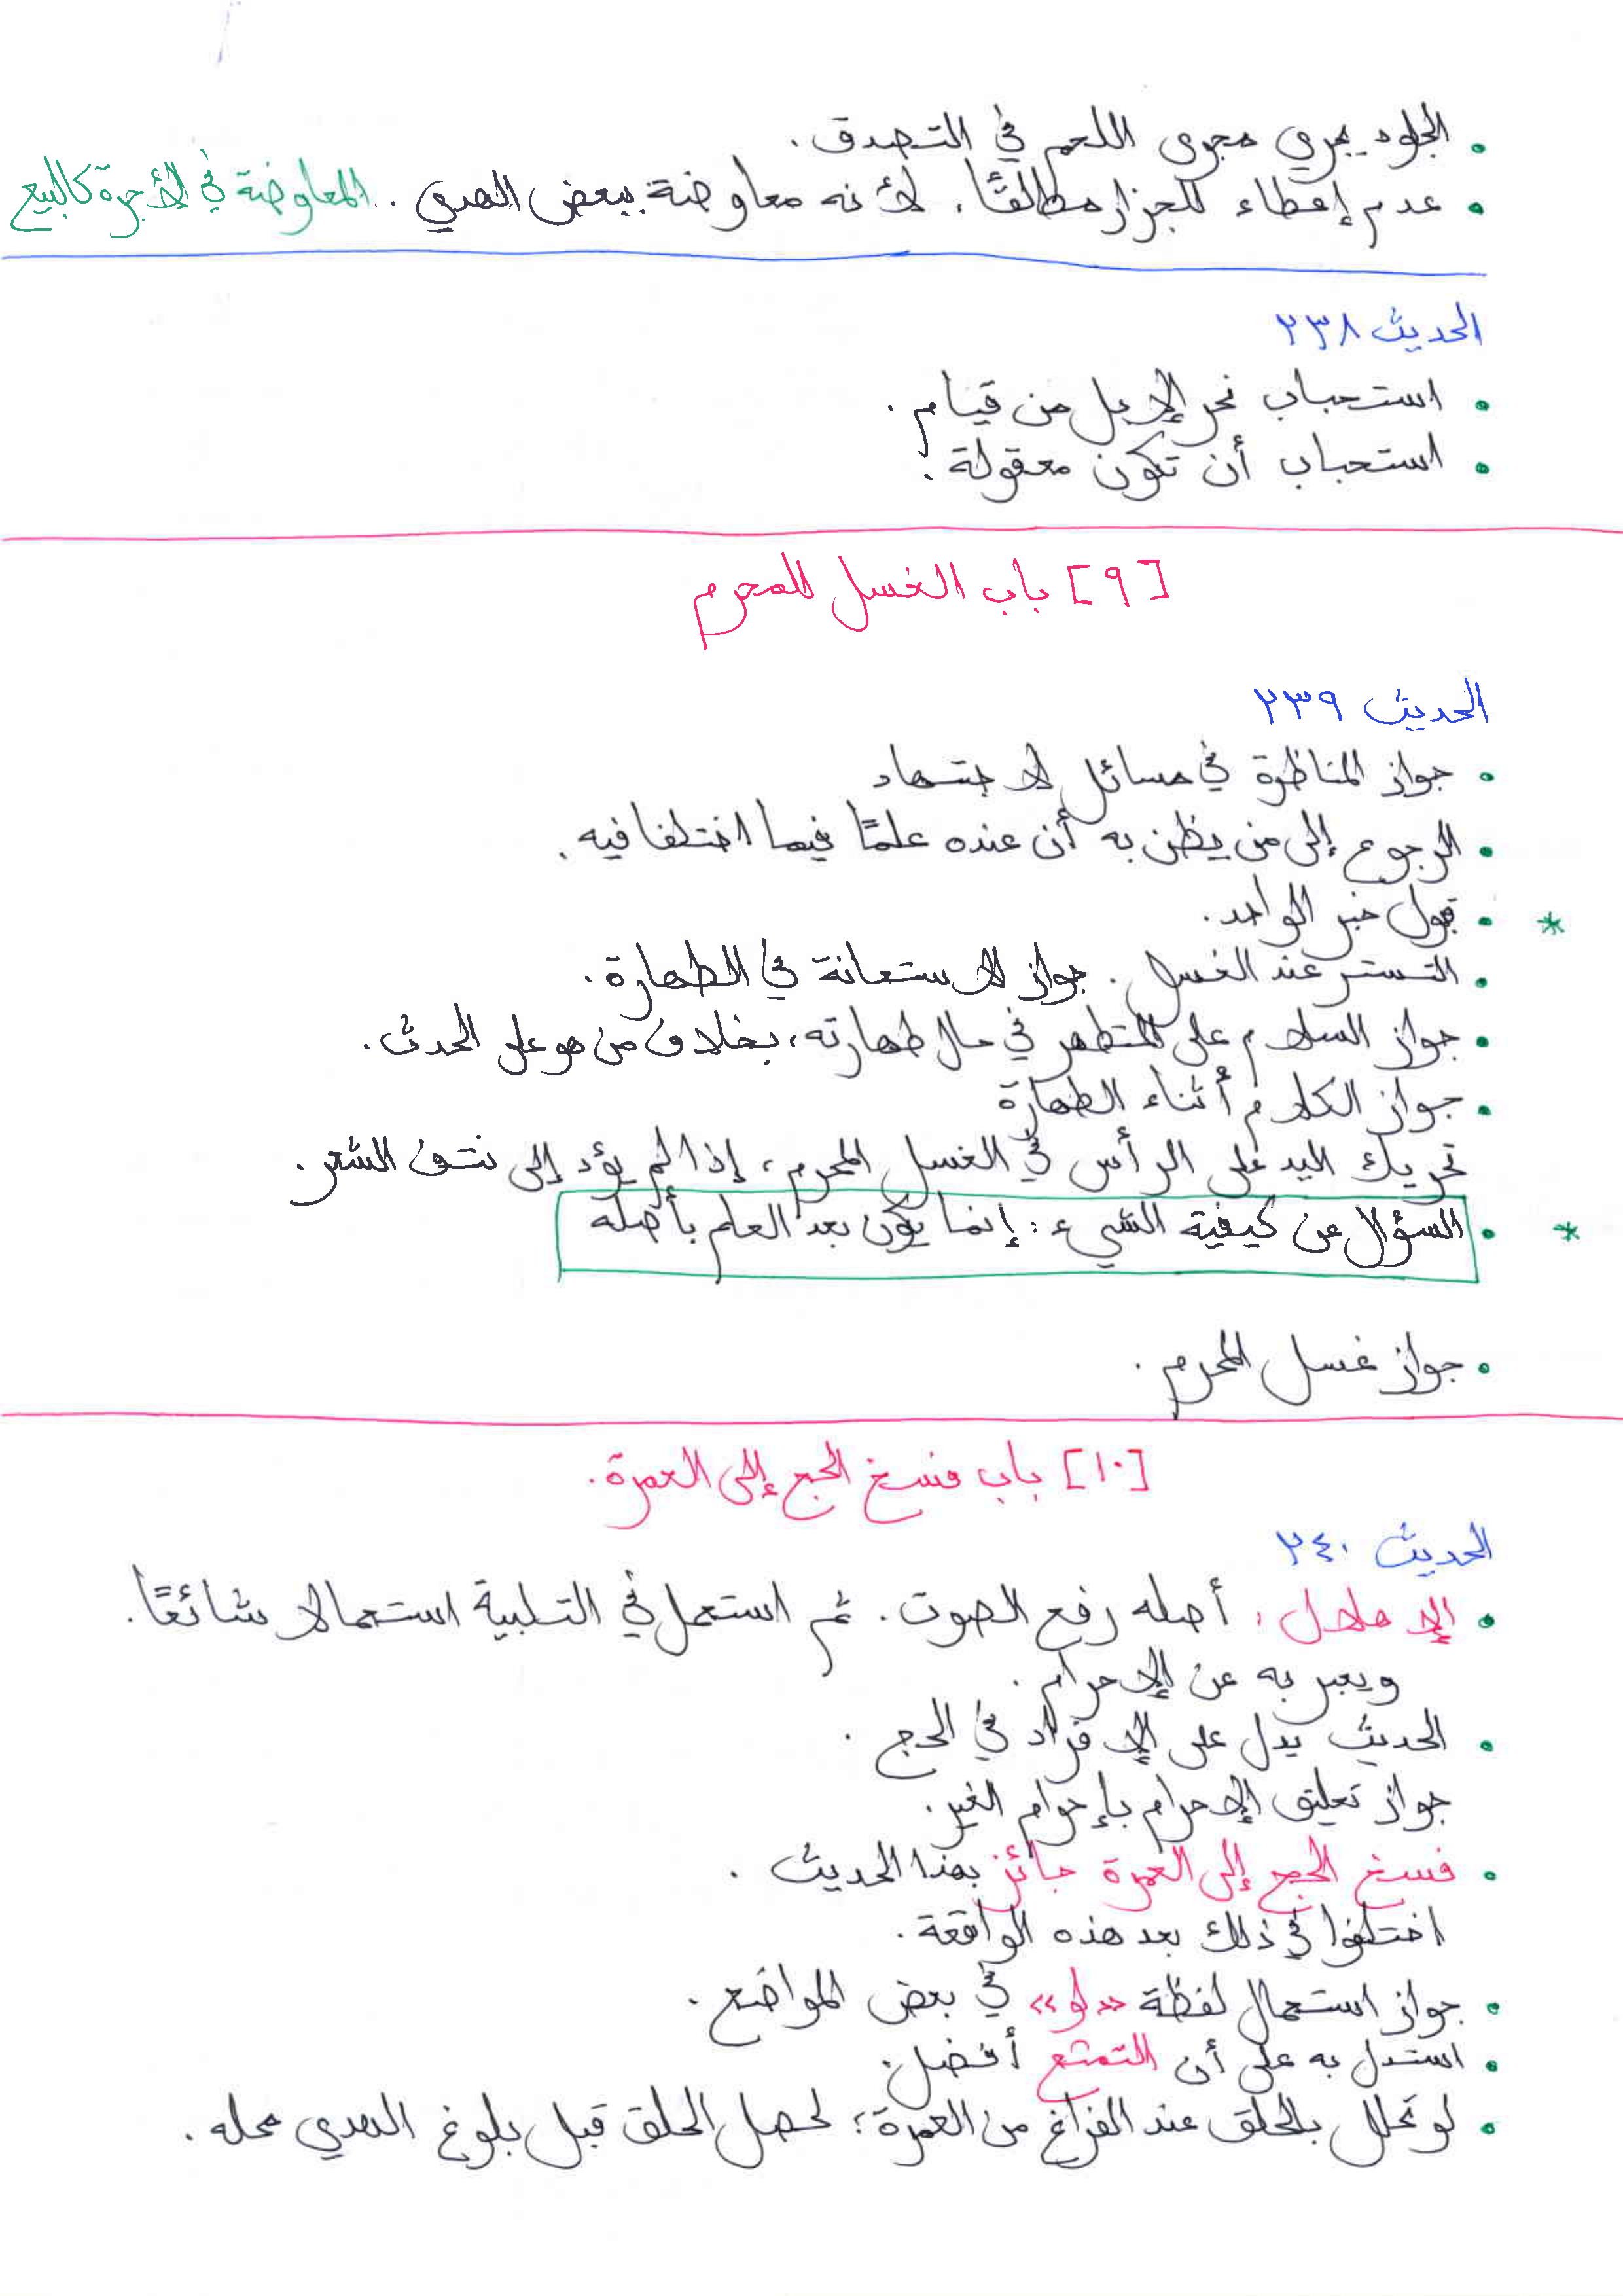 • الجلود يجري مجرى اللحم في التصدق.
• عدم إعطاء للجزار مطلقًا، لأنه معاوضة ببعض الهدي. المعاوضة في الأجرة كالبيع
الحديث ٢٣٨
• استحباب نحر الإبل من قيام.
• استحباب أن تكون معقولة.
[٩] باب الغسل للمحرم
الحديث ٢٣٩
• جواز المناظرة في مسائل الاجتهاد
• الرجوع إلى من يظن به أن عنده علمًا فيما اختلفا فيه.
* • قبول خبر الواحد.
• التستر عند الغسل. جواز الاستعانة في الطهارة.
• جواز السلام على المتطهر في حال طهارته، بخلاف من هو على الحدث.
• جواز الكلام أثناء الطهارة
تحريك اليد على الرأس في الغسل المحرم، إذا لم يؤد إلى نتف الشعر.
* • السؤال عن كيفية الشيء: إنما يكون بعد العلم بأصله
• جواز غسل المحرم.
[١٠] باب فسخ الحج إلى العمرة.
الحديث ٢٤٠
• الإهلال، أصله رفع الصوت. ثم استعمل في التلبية استعمالا شائعًا.
ويعبر به عن الإحرام.
• الحديث يدل على الإفراد في الحج.
جواز تعليق الإحرام بإحرام الغير.
• فسخ الحج إلى العمرة جائز بهذا الحديث.
اختلفوا في ذلك بعد هذه الواقعة.
• جواز استعمال لفظة «لو» في بعض المواضع.
• استدل به على أن التمتع أفضل.
• لو تحلل بالحلق عند الفراغ من العمرة؛ لحصل الحلق قبل بلوغ الهدي محله.